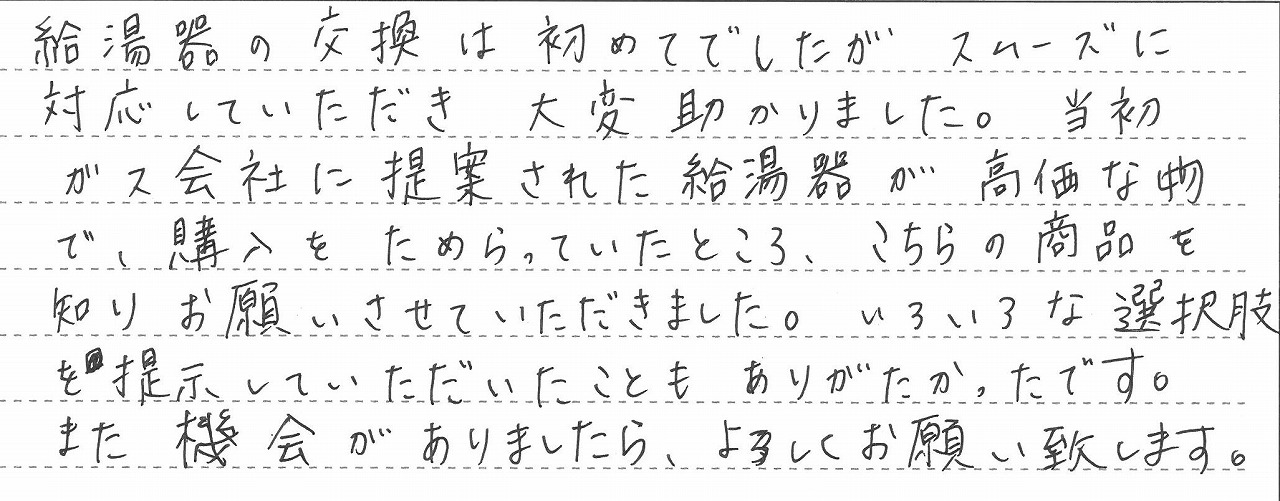 給湯器の交換は初めてでしたが スムーズに
対応していただき 大変助かりました。当初
ガス会社に提案された給湯器が高価な物
で、購入をためらっていたところ、こちらの商品を
知りお願いさせていただきました。いろいろな選択肢
を提示していただいたことも ありがたかったです。
また機会がありましたら、よろしくお願い致します。